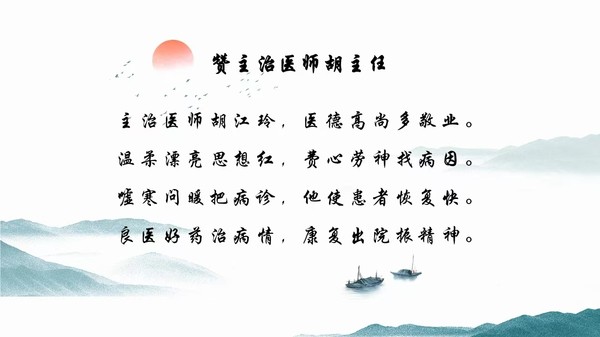 赞主治医师胡主任
主治医师胡江玲，医德高尚多敬业。
温柔漂亮思想红，费心劳神找病因。
嘘寒问暖把病诊，他使患者恢复快。
良医好药治病情，康复出院振精神。